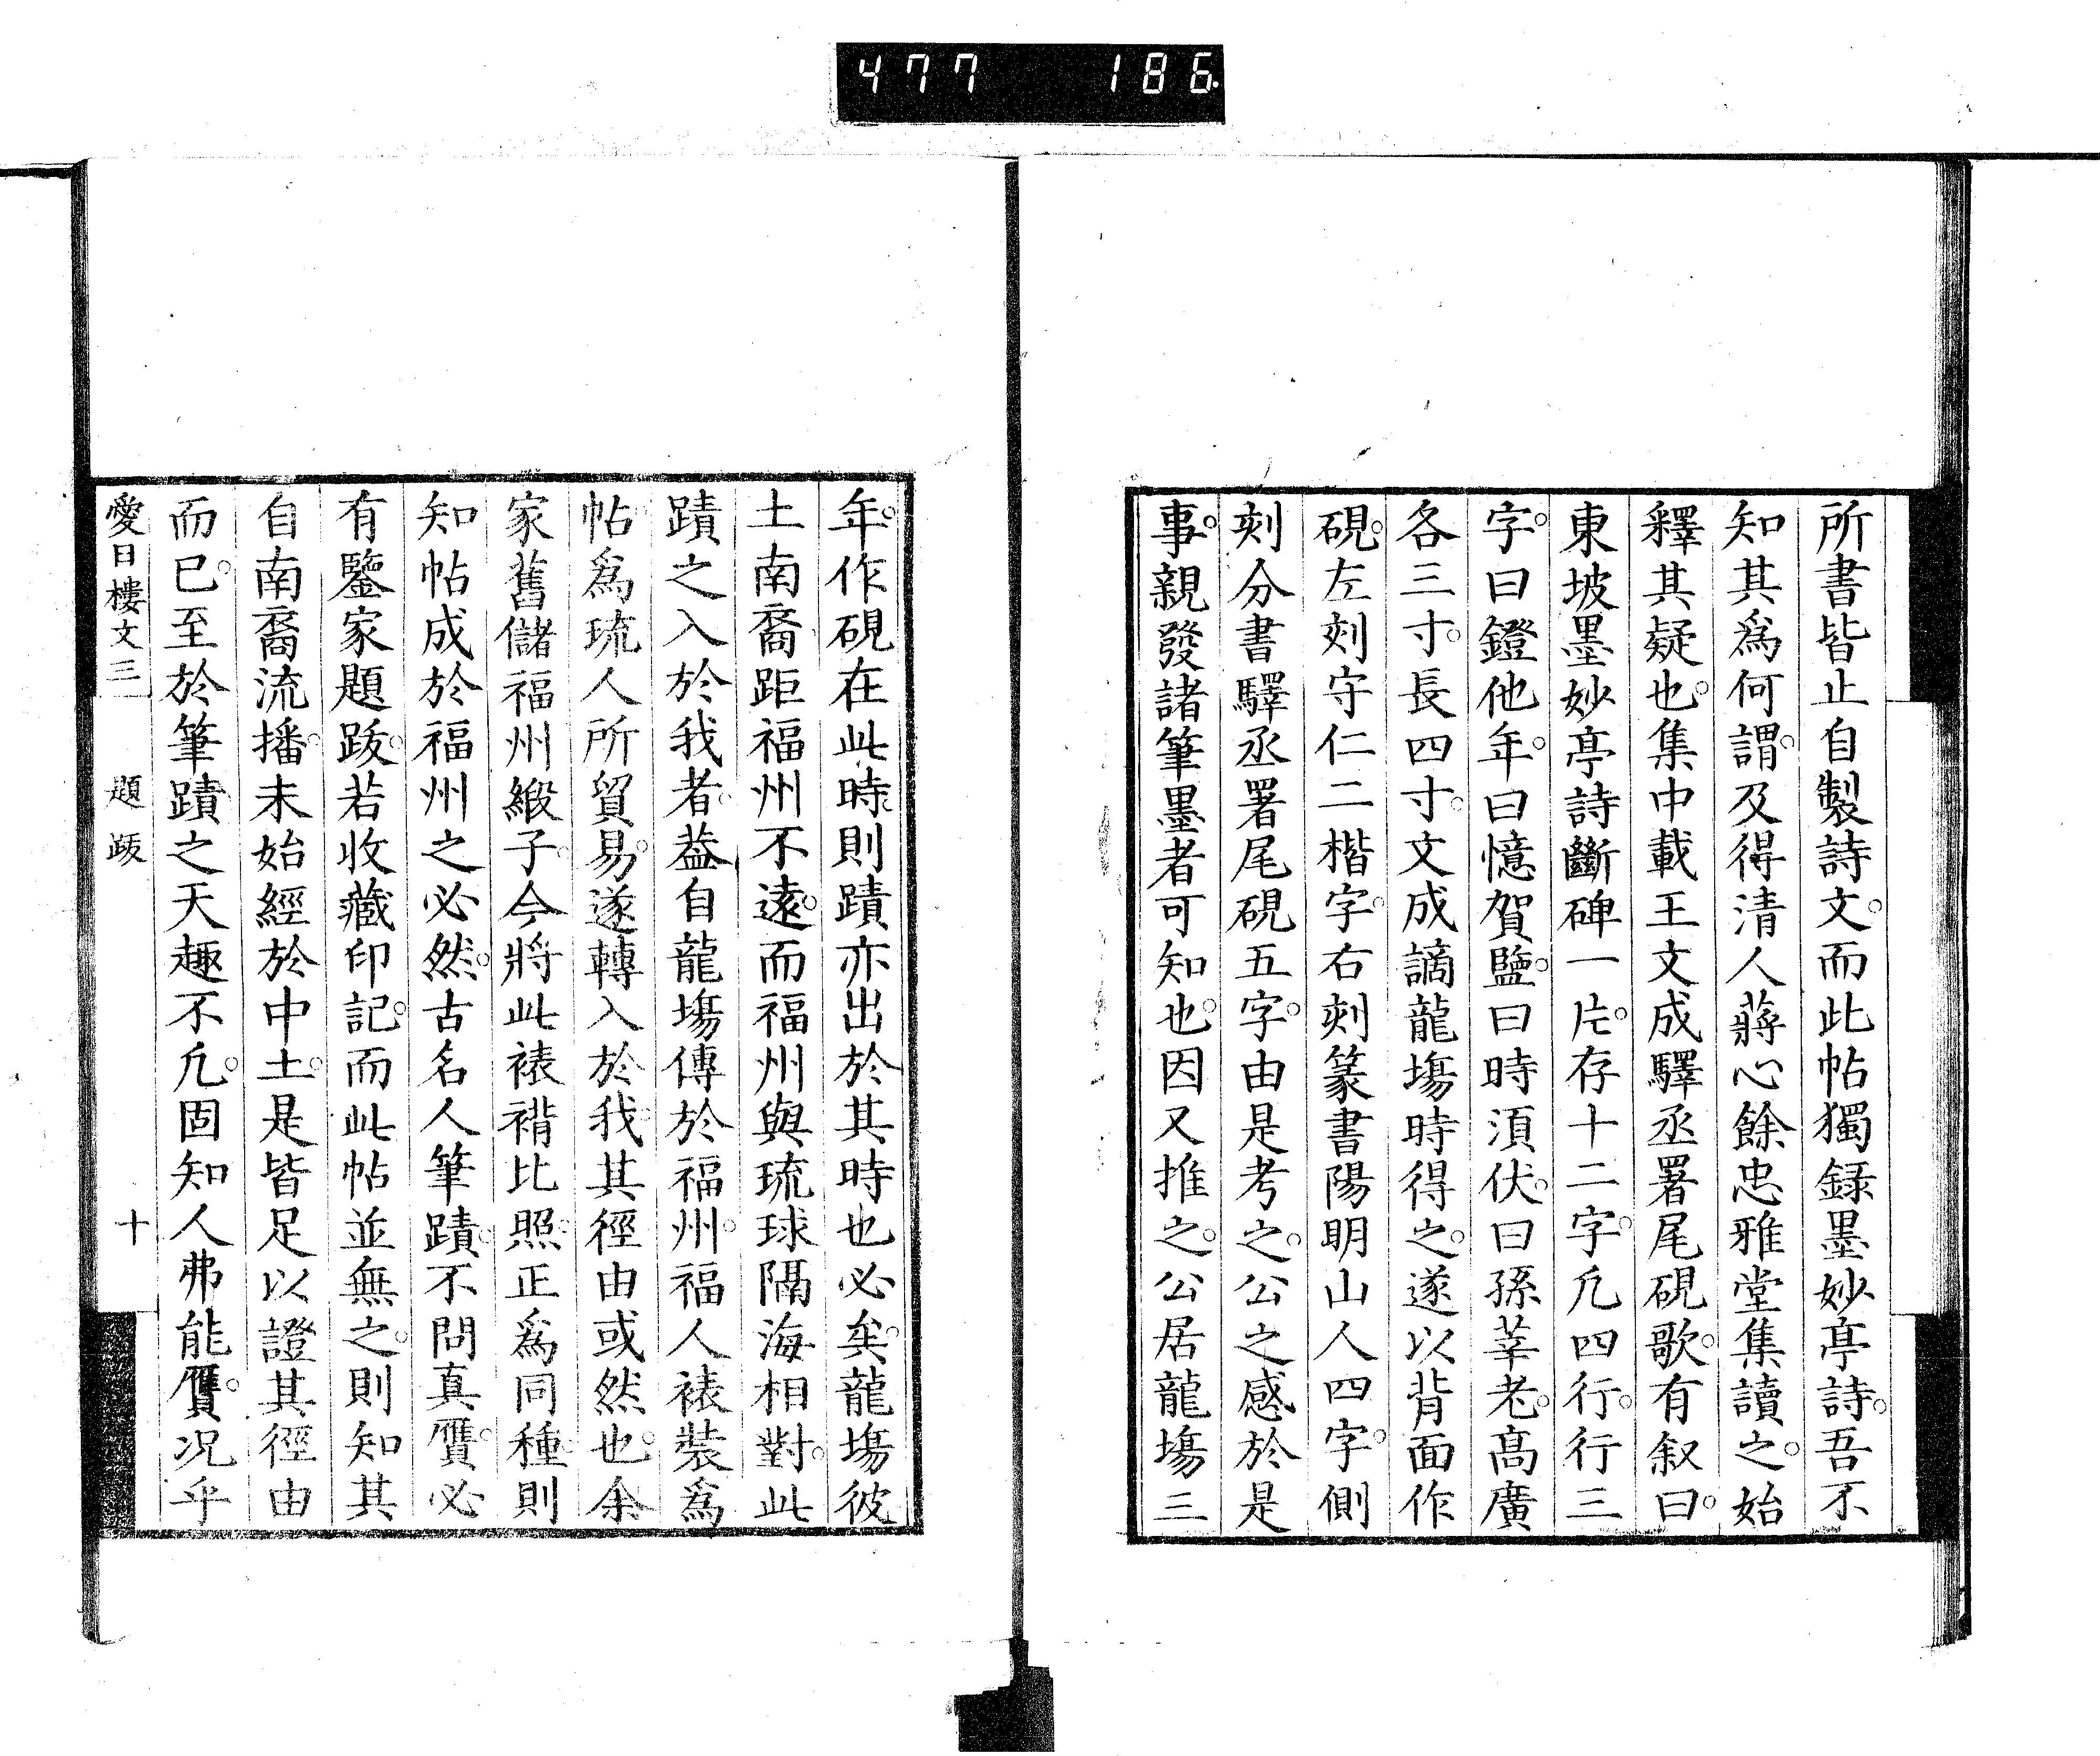 477 186
所書皆止自製詩文。而此帖獨録墨妙亭詩。吾不
知其爲何謂。及得清人蔣心餘忠雅堂集讀之。始
釋其疑也。集中載王文成驛丞署尾硯歌。有叙曰。
東坡墨妙亭詩斷碑一片。存十二字。凡四行。行三
字。曰鐙他年。曰憶賀盬。曰時須伏。曰孫莘老。高廣
各三寸。長四寸。文成謫龍塲時得之。遂以背面作
硯。左刻守仁二楷字。右刻篆書陽明山人四字。側
刻分書驛丞署尾硯五字。由是考之。公之感於是
事。親發諸筆墨者可知也。因又推之。公居龍塲三
年。作硯在此時。則蹟亦出於其時也必矣。龍塲彼
土南裔。距福州不遠。而福州與琉球隔海相對。此
蹟之入於我者。葢自龍塲傳於福州。福人裱裝爲
帖。爲琉人所貿易。遂轉入於我。其徑由或然也。余
家舊儲福州緞子。今將此裱褙比照。正爲同種。則
知帖成於福州之必然。古名人筆蹟。不問真贋。必
有鑒家題跋。若收藏印記。而此帖並無之。則知其
自南裔流播。未始經於中土。是皆足以證其徑由
而已。至於筆蹟之天趣不凡。固知人弗能贋。况乎
愛日樓文三 題跋 十